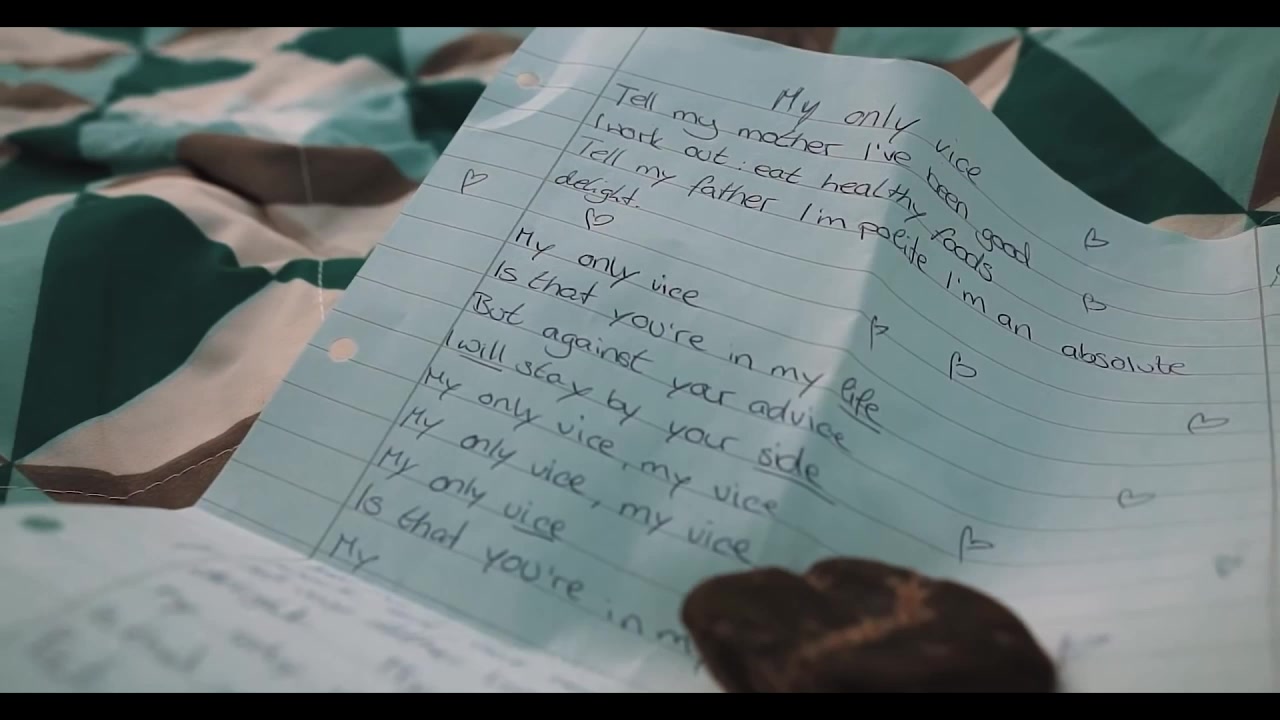 My only vice
Tell my mother I've been good
I work out. eat healthy foods
Tell my father I'm polite I'm an absolute
delight.
My only vice
Is that you're in my life
But against your advice
I will stay by your side
My only vice, my vice
My only vice, my vice
My only vice
Is that you're in
My